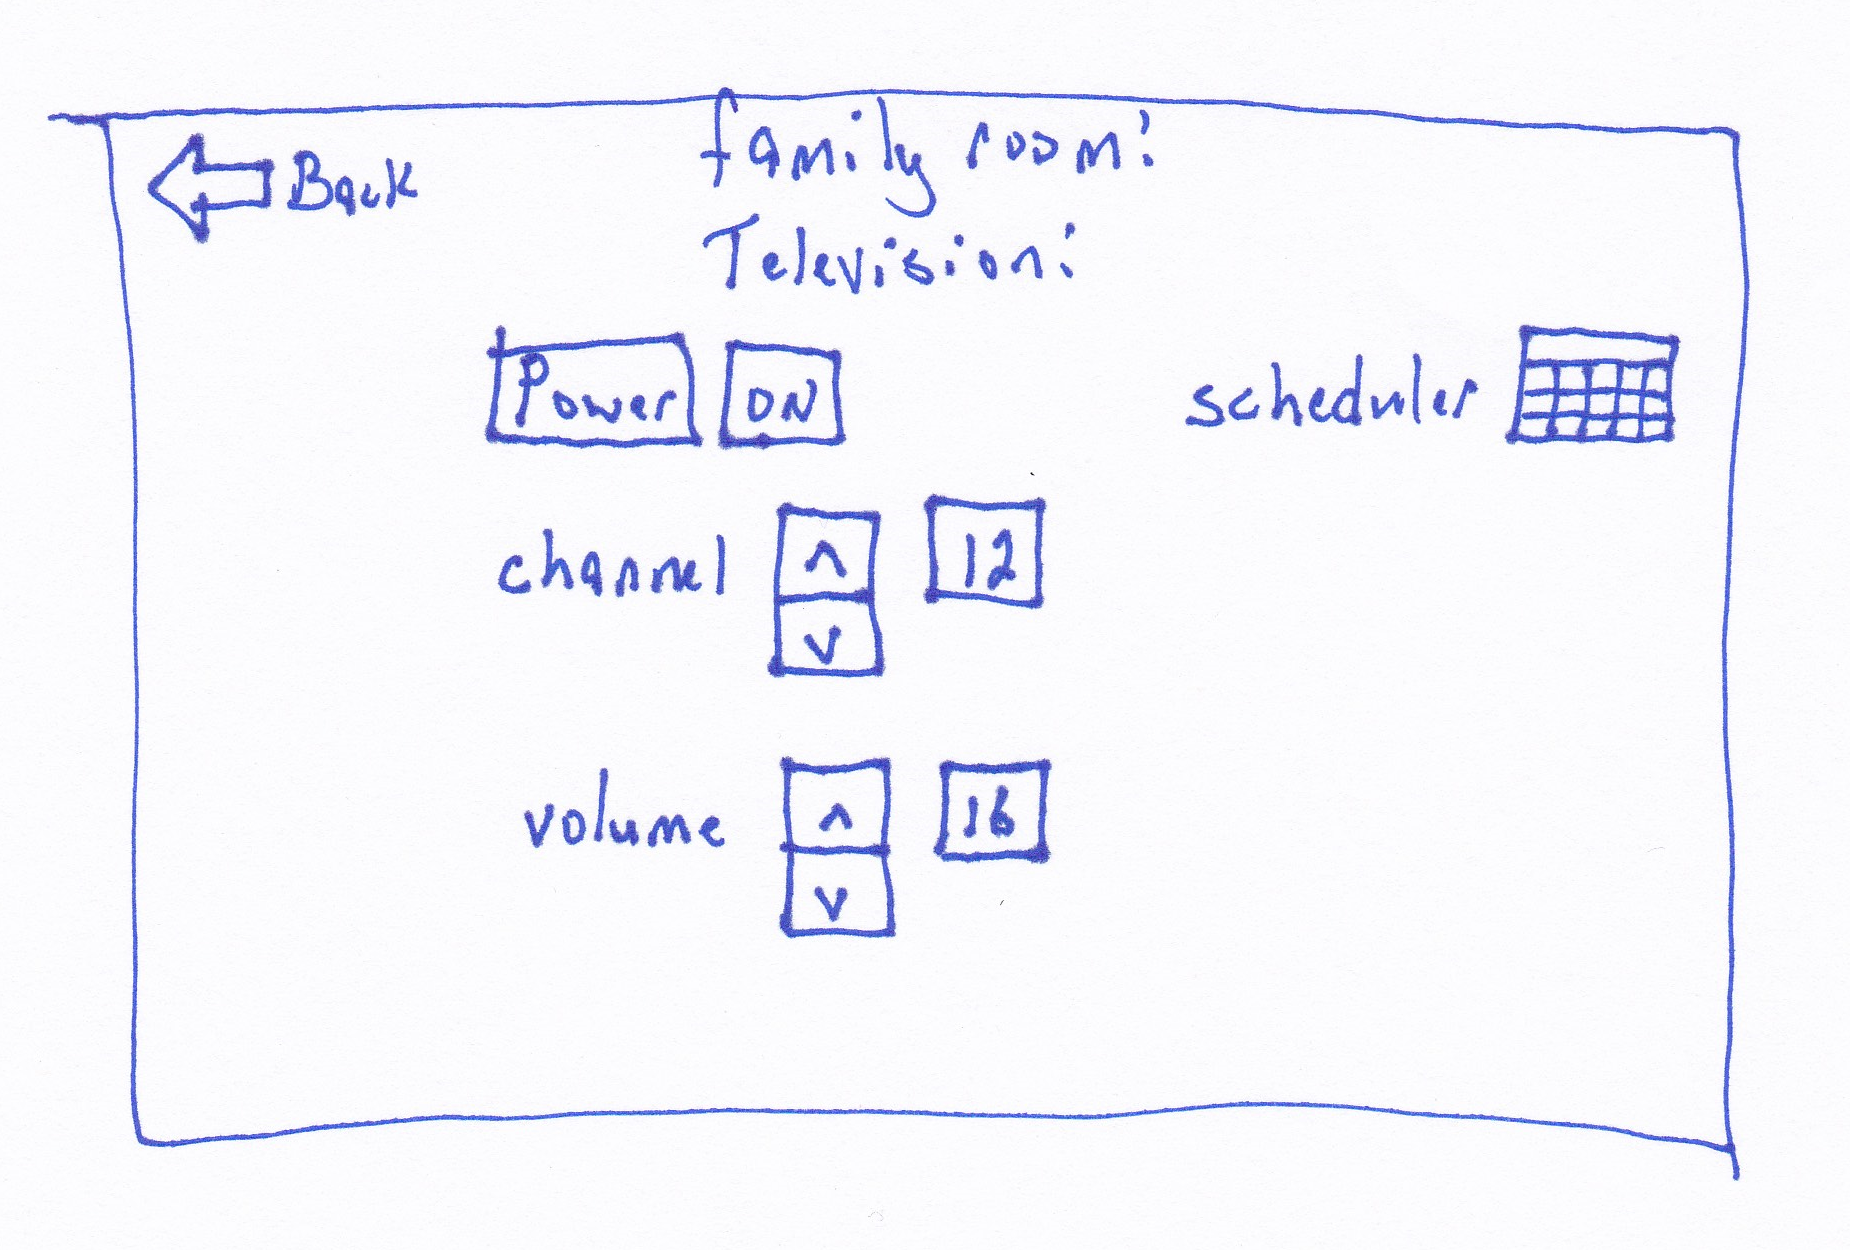 Back
family room:
Television:
Power ON
scheduler
channel ^ 12
v
volume ^ 16
v